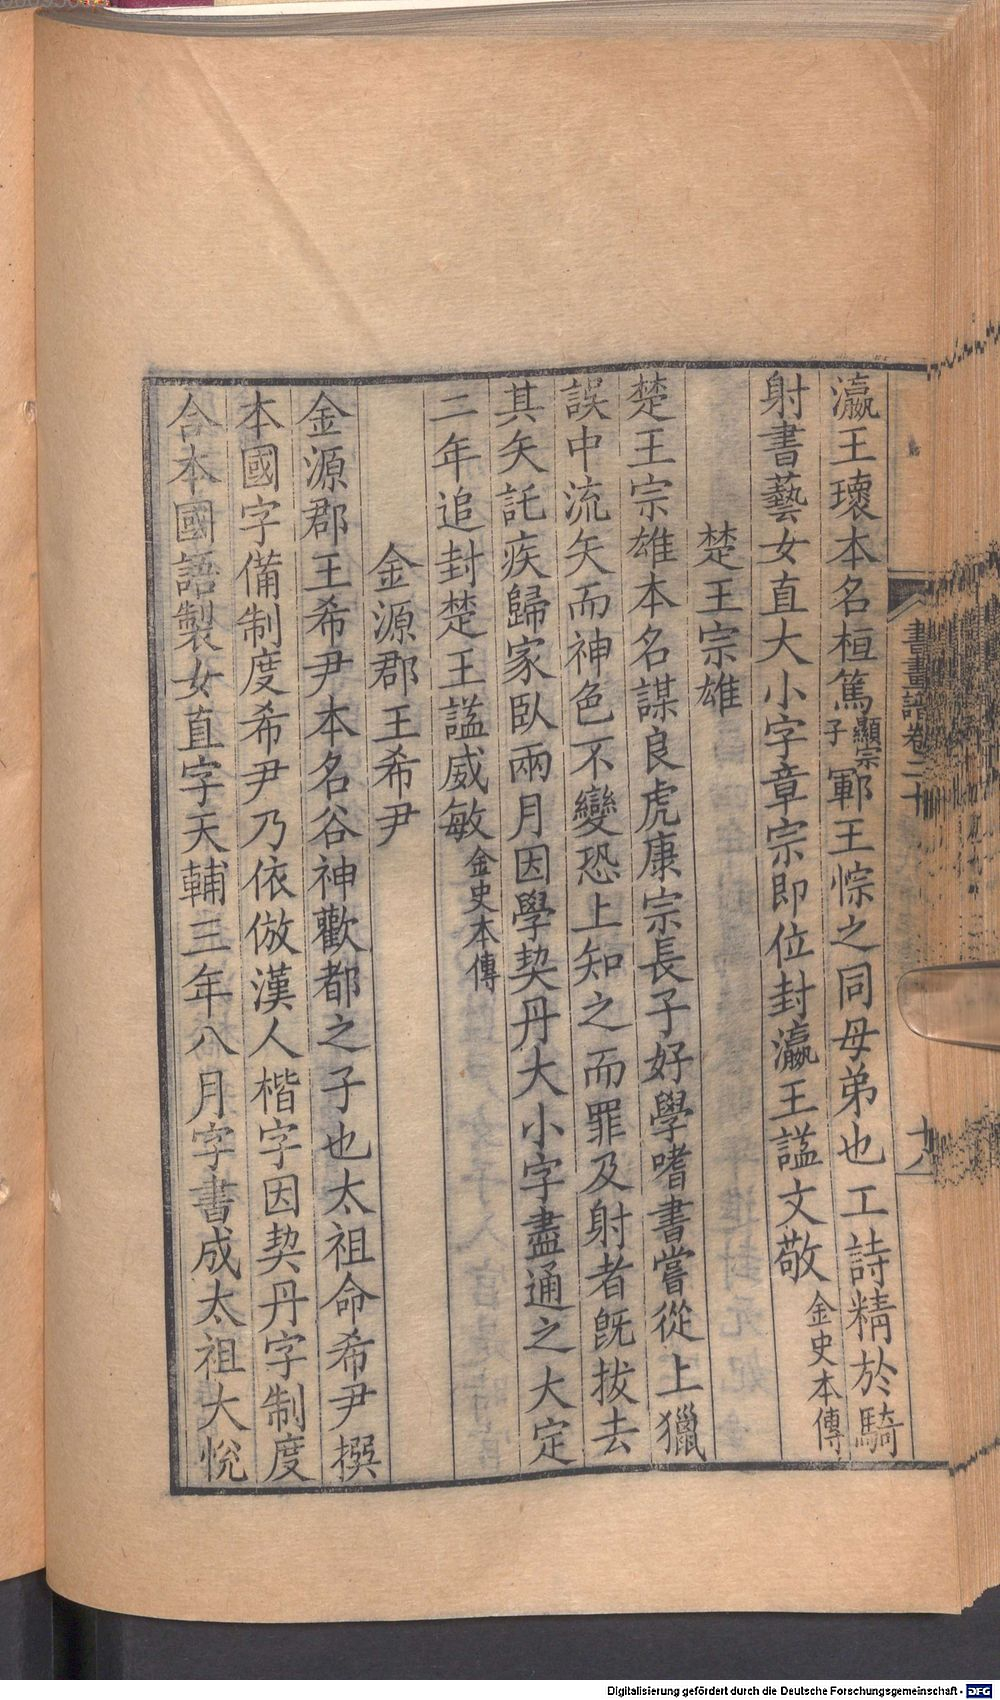 書畫譜卷二十
十八
瀛王瓌本名桓篤顯宗子鄆王悰之同母弟也工詩精於騎
射書藝女直大小字章宗即位封瀛王諡文敬金史本傳
楚王宗雄
楚王宗雄本名謀良虎康宗長子好學嗜書嘗從上獵
誤中流矢而神色不變恐上知之而罪及射者旣拔去
其矢託疾歸家臥兩月因學契丹大小字盡通之大定
二年追封楚王諡威敏金史本傳
金源郡王希尹
金源郡王希尹本名谷神歡都之子也太祖命希尹撰
本國字備制度希尹乃依倣漢人楷字因契丹字制度
合本國語製女直字天輔三年八月字書成太祖大悅
Digitalisierung gefördert durch die Deutsche Forschungsgemeinschaft - DFG